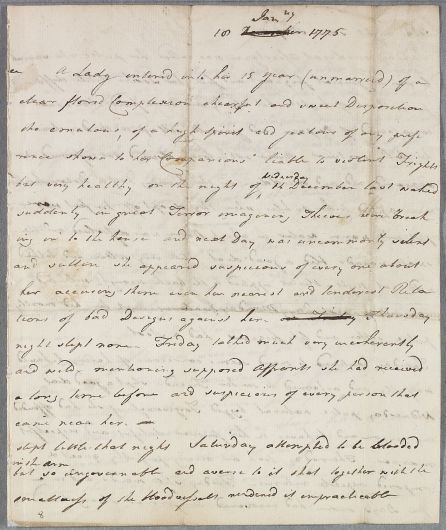 Jan ry
18 1775
A Lady entered into her 15 year (unmarried) of a
clear florid Complexion chearful and sweet Disposition
she emulous, of a high spirit and jealous of any
rence shown to her Companions liable to violent Frights
but very healthy on the night of Wednesday 14 December last waked
suddenly in great Terror imagening Thieves were break
ing in to the house and next Day was uncommonly silent
and sullen she appeared suspicious of every one about
her accusing them even her nearest and tenderest Rela
tions of bad Designs against her Thursday
night slept none Friday talked much very incoherently
and wild, mentioning supposed Affronts she had received
a long time before and suspicious of every person that
came near her
slept little that night Saturday attempted to be blooded
in the arm
but so ungovernable and averse to it that together with the
smallness of the Bloodvessels rendered it impracticable
8